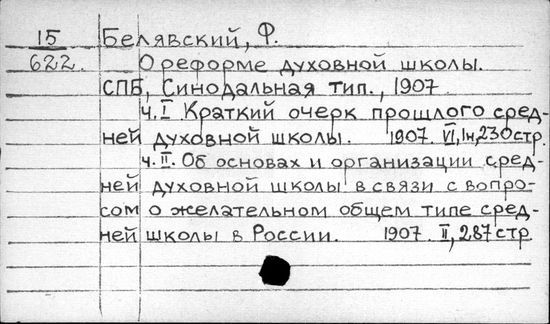 15 Белявский, Ф.
622. О реформе духовной школы.
СПБ, Синодальная тип., 1907.
ч. I Краткий очерк прошлого сред-
ней духовной школы. 1907. VI, 1н, 230 стр.
ч. II. Об основах и организации сред-
ней духовной школы в связи с вопро-
сом о желательном общем типе сред-
ней школы в России. 1907. II, 287 стр.